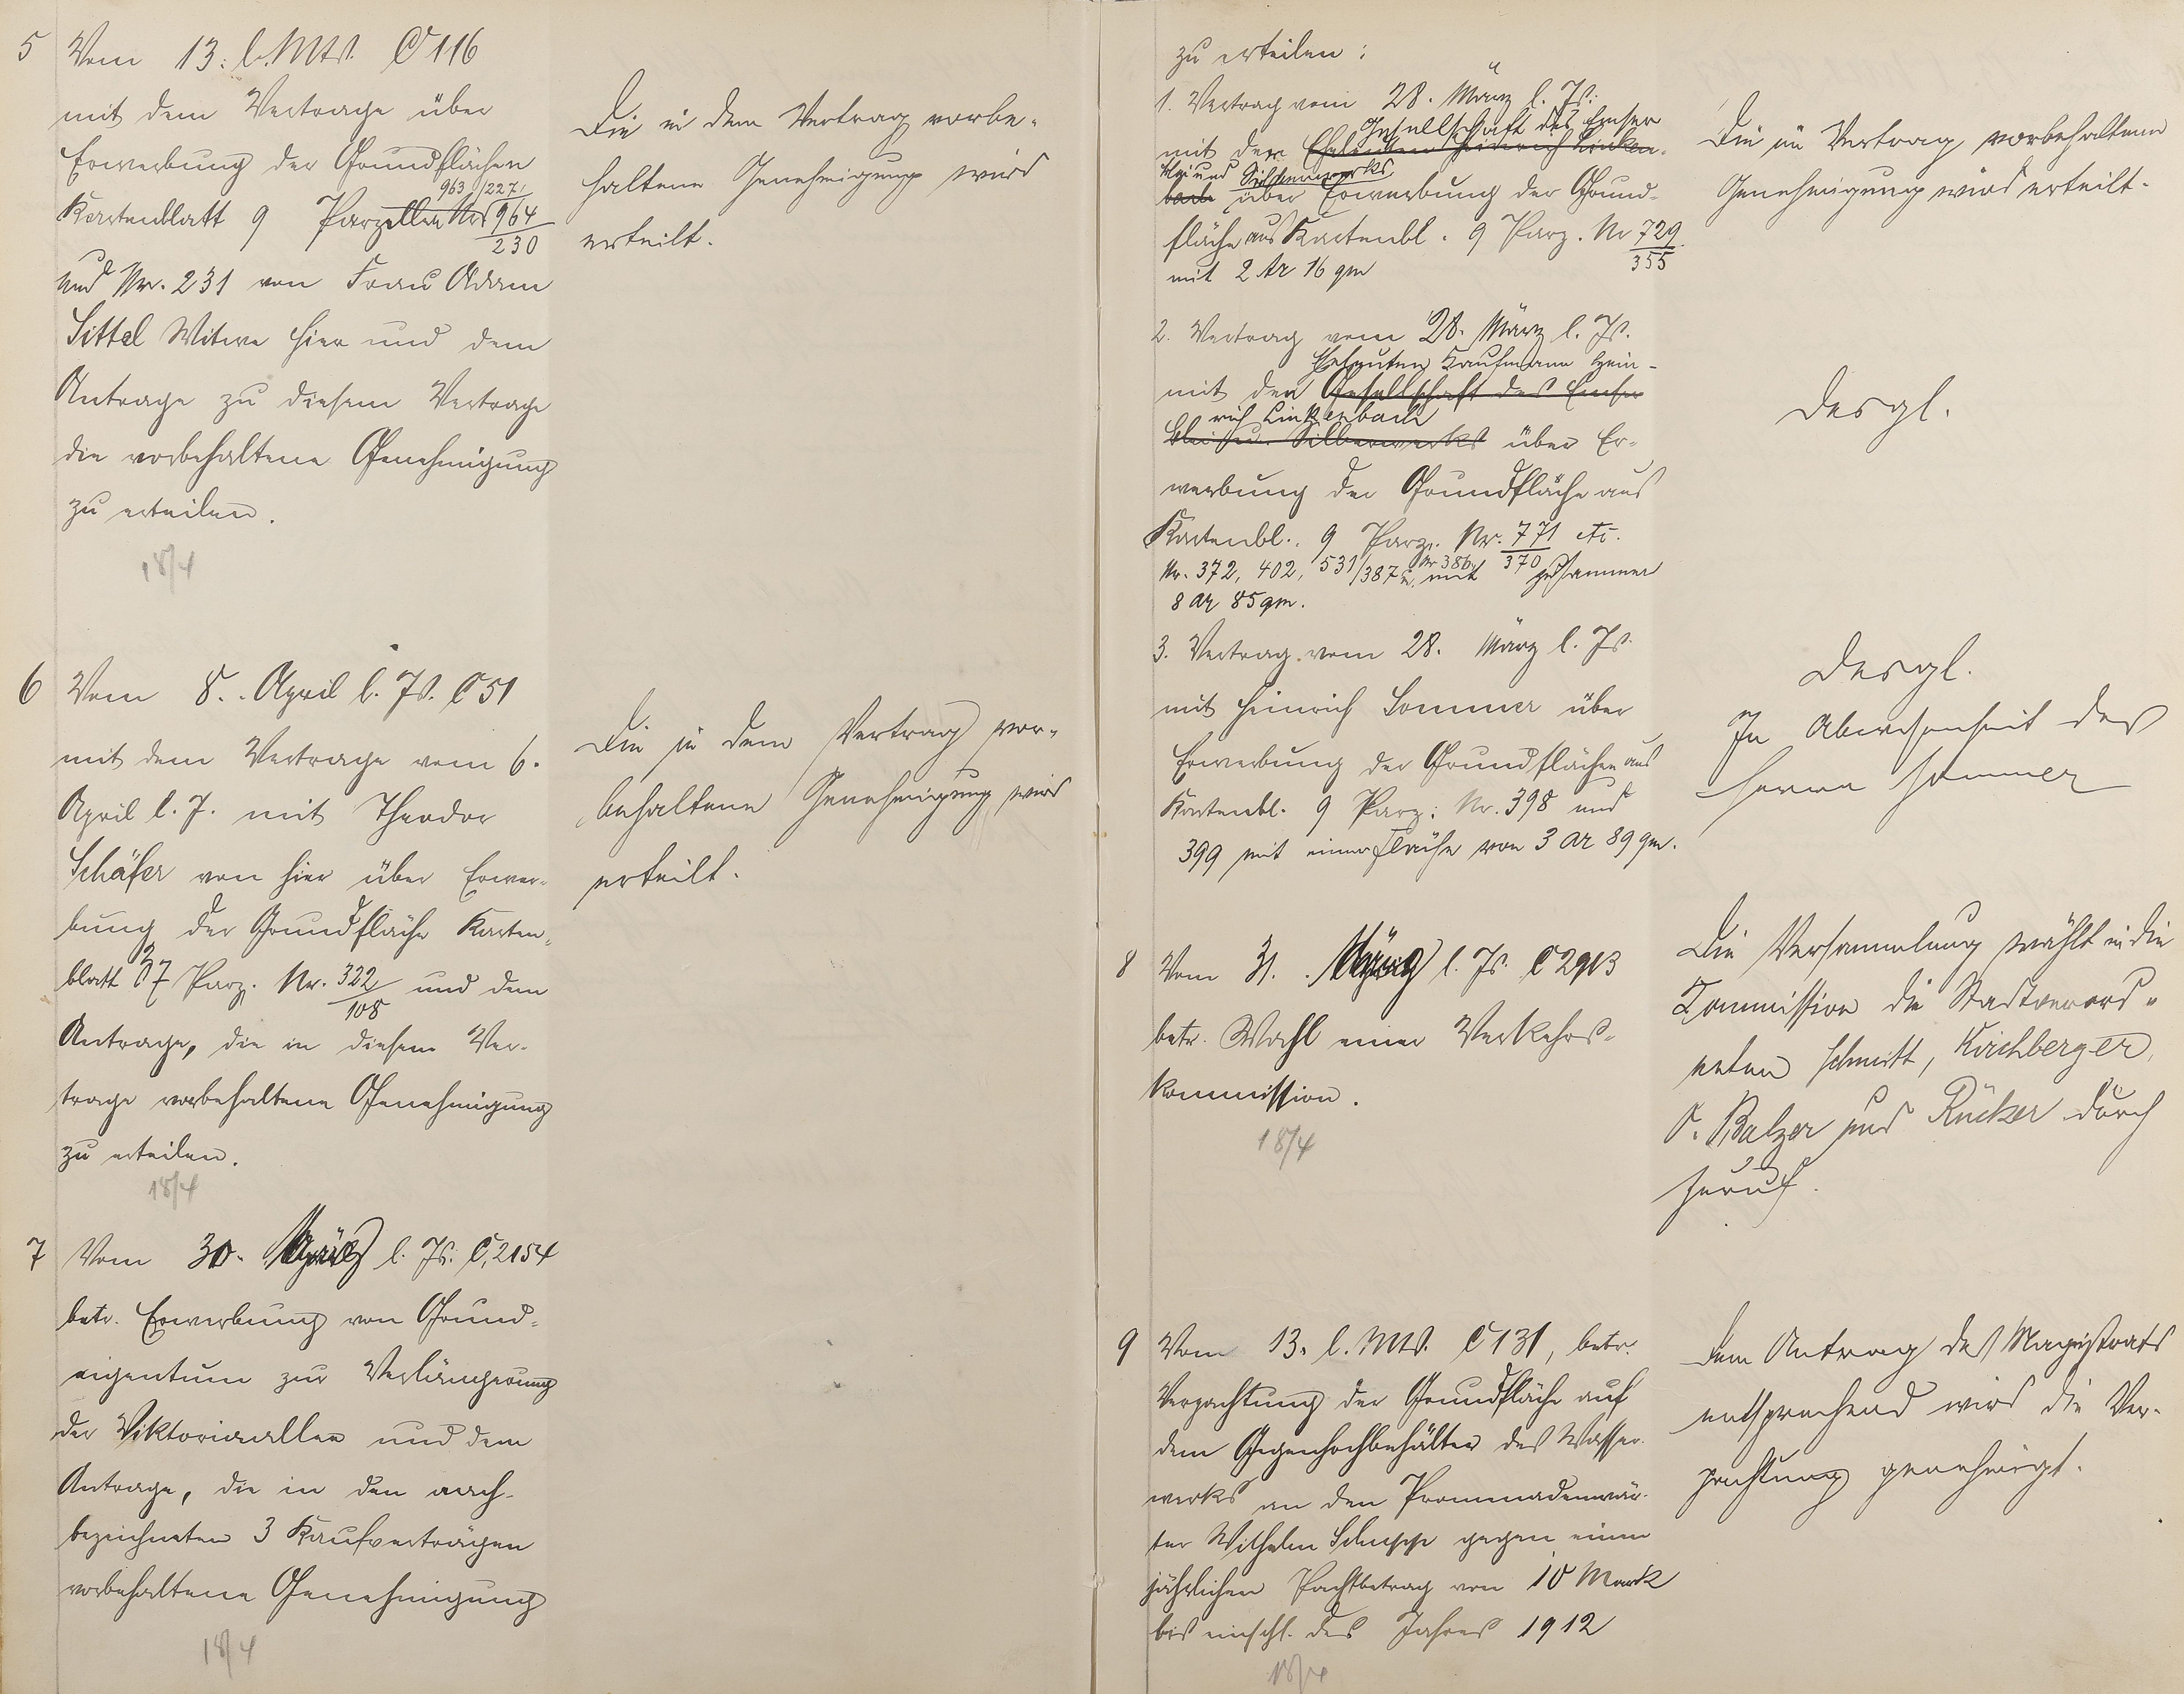 5 Vom 13. l. Mts. C 116
mit dem Vertrage über
Erwerbung der Grundflächen
963/227,
Kartenblatt 9 Parzellen Nrs 964/230
und Nr. 231 von Frau Adam
Sittel Witwe hier und dem
Antrage zu diesem Vertrage
die vorbehaltene Genehmigung
zu erteilen.
18/4
Die in dem Vertrag vorbe-
haltene Genehmigung wird
erteilt.
6 Vom 8. April l. Js. C 51
mit dem Vertrage vom 6.
April l. J. mit Theodor
Schäfer von hier über Erwer-
bung der Grundfläche Karten-
blatt 37 Parz. Nr. 322/108 und dem
Antrage, die in diesem Ver-
trage vorbehaltene Genehmigung
zu erteilen.
18/4
Die in dem Vertrag vor-
behaltene Genehmigung wird
erteilt.
7 Vom 30. März l. Js. C. 2154
betr. Erwerbung von Grund-
eigentum zur Verlängerung
der Viktoriaallee und dem
Antrage, die in den nach-
bezeichneten 3 Kaufverträgen
vorbehaltene Genehmigung
18/4
zu erteilen:
1. Vertrag vom 28. März l. Js.
Gesellschaft des Emser
mit der Eheleuten Heinrich Linken-
Blei und Silberwerks
bach über Erwerbung der Grund-
fläche aus Kartenbl. 9 Parz. Nr 729/355
mit 2 Ar 16 qm
Die im Vertrag vorbehaltene
Genehmigung wird erteilt.
2. Vertrag vom 28. März l. Js.
Eheleuten Kaufmann Hein-
mit den Gesellschaft des Emser
rich Linkenbach
Blei u. Silberwerks über Er-
werbung der Grundfläche aus
Kartenbl. 9 Parz. Nr. 771/370 etc.
Nr. 372, 402, 531/387 u. Nr 386 mit zusammen
8 ar 85 qm.
Desgl.
3. Vertrag vom 28. März l. Js.
mit Heinrich Sommer über
Erwerbung der Grundflächen aus
Kartenbl. 9 Parz. Nr. 398 und
399 mit einer Fläche von 3 ar 89 qm.
Desgl.
In Abwesenheit des
Herrn Sommer
8 Vom 31. März l. Js. C 2913
betr. Wahl einer Verkehrs-
kommission.
18/4
Die Versammlung wählt in die
Commission die Stadtverord-
neten Schmitt, Kirchberger,
O. Balzer und Rücker durch
Zuruf.
9 Vom 13. l. Mts. C 131, betr.
Verpachtung der Grundfläche auf
dem Gegenhochbehälter des Wasser-
werks an den Promenadenwär-
ter Wilhelm gegen einen
jährlichen Pachtbetrag von 10 Mark
bis einschl. des Jahres 1912
18/4
Dem Antrag des Magistrats
entsprechend wird die Ver-
pachtung genehmigt.